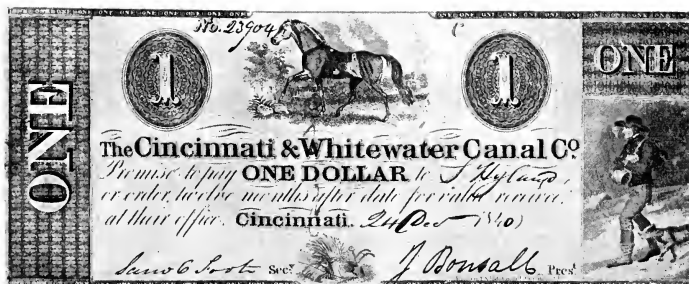 ONE ONE ONE ONE ONE ONE ONE ONE ONE ONE
No. 23904 C
1 1
ONE
ONE
The Cincinnati & Whitewater Canal Co.
Promise to pay ONE DOLLAR to J Hyland,
or order, twelve months after date for value receive
at their office. Cincinnati. 24 Dec 1840
Saml Sec.y J Bonsall Prest